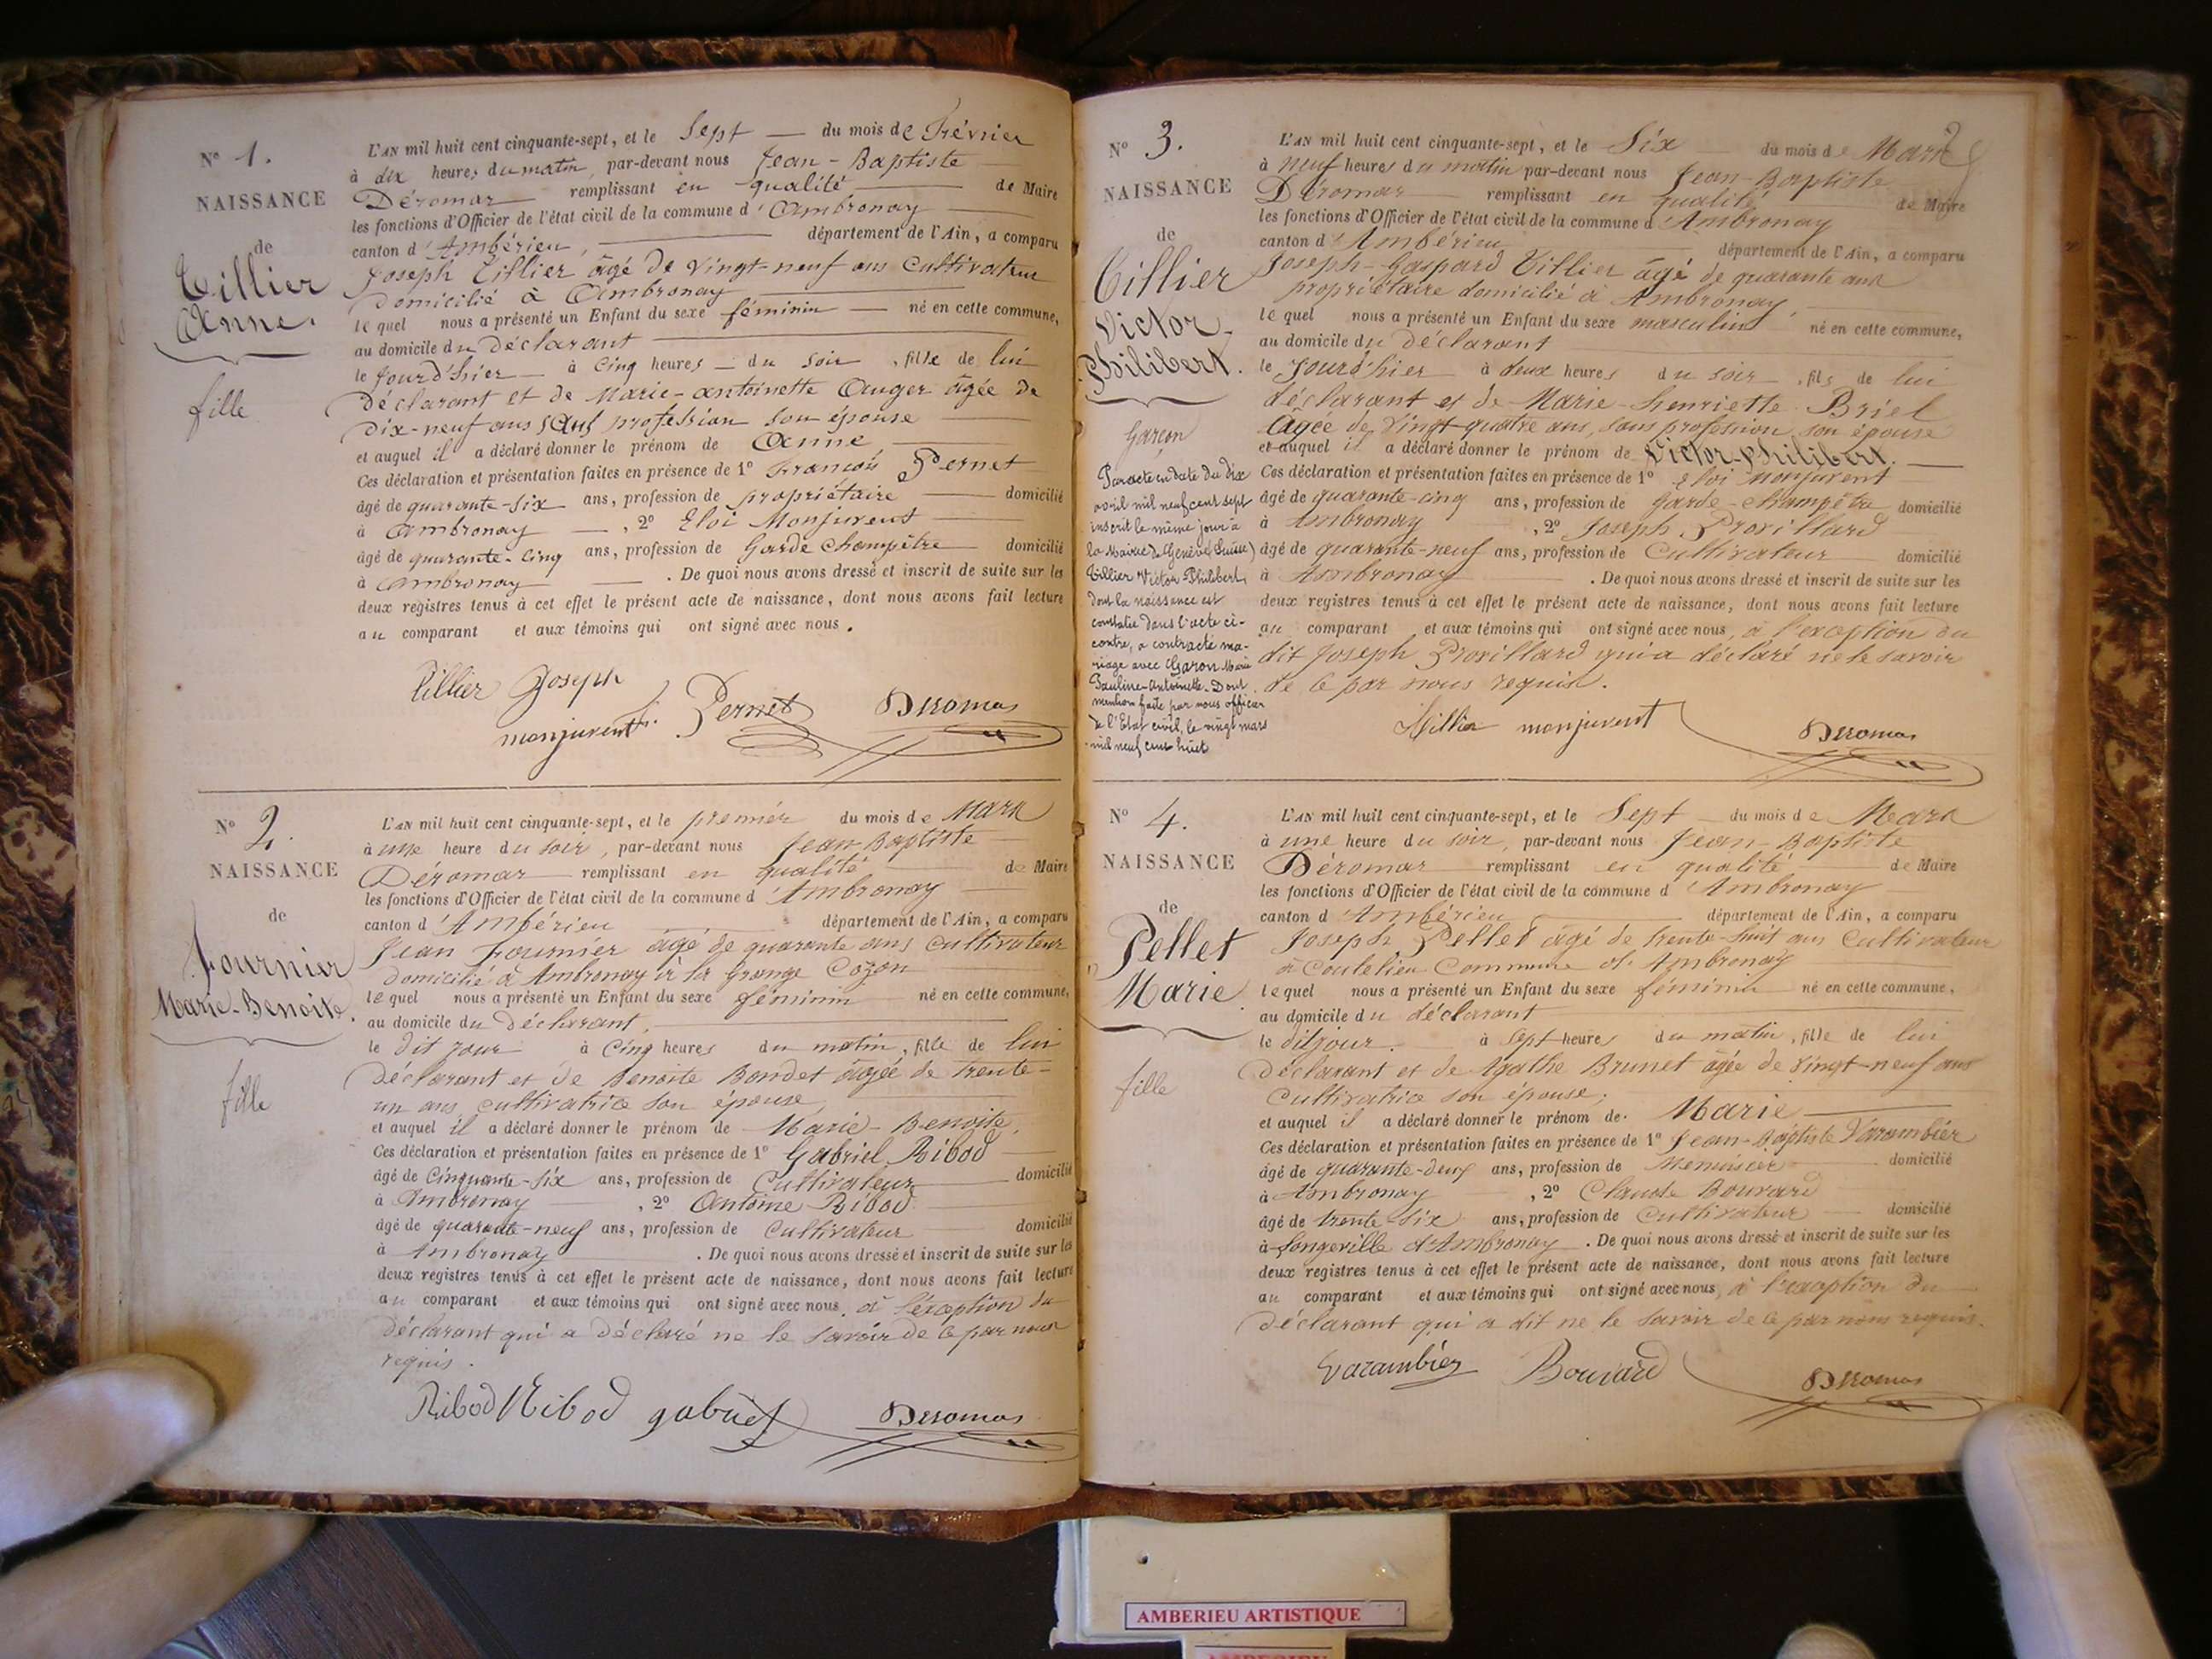 N° 1.
NAISSANCE
de
Tillier
Anne.
fille
L'AN mil huit cent cinquante-sept, et le Sept — du mois de Février
à dix heures du matin, par-devant nous Jean-Baptiste
Déromas remplissant en qualité de Maire
les fonctions d'Officier de l'état civil de la commune d'Ambronay
canton d'Ambérieu, département de l'Ain, a comparu
Joseph Tillier âgé de vingt-neuf ans Cultivateur
domicilié à Ambronay
lequel nous a présenté un Enfant du sexe féminin — né en cette commune,
au domicile du Déclarant
le jourd'hier à Cinq heures du soir, fille de lui
Déclarant et de Marie-antoinette Auger âgée de
Dix-neuf ans sans profession son épouse
et auquel il a déclaré donner le prénom de Anne
Ces déclaration et présentation faites en présence de 1° François Pernet
âgé de quarante-six ans, profession de propriétaire domicilié
à Ambronay, 2° Eloi Monjuvent
âgé de quarante-cinq ans, profession de Garde Champêtre domicilié
à Ambronay. De quoi nous avons dressé et inscrit de suite sur les
deux registres tenus à cet effet le présent acte de naissance, dont nous avons fait lecture
au comparant et aux témoins qui ont signé avec nous.
Tillier Joseph
monjuvent Pernet Deromas
N° 2.
NAISSANCE
de
Fournier
Marie-Benoite.
fille
L'AN mil huit cent cinquante-sept, et le premier du mois de Mars
à une heure du soir, par-devant nous Jean-Baptiste
Déromas remplissant en qualité de Maire
les fonctions d'Officier de l'état civil de la commune d'Ambronay
canton d'Ambérieu département de l'Ain, a comparu
Jean Fournier âgé de quarante ans Cultivateur
domicilié à Ambronay à la Grange Cozon
lequel nous a présenté un Enfant du sexe féminin né en cette commune,
au domicile du Déclarant.
le dit jour à Cinq heures du matin, fille de lui
Déclarant et de Benoite Bondet âgée de trente-
un ans cultivatrice son épouse
et auquel il a déclaré donner le prénom de Marie-Benoite.
Ces déclaration et présentation faites en présence de 1° Gabriel Ribod
âgé de Cinquante-six ans, profession de Cultivateur domicilié
à Ambronay, 2° Antoine Ribod
âgé de quarante-neuf ans, profession de Cultivateur domicilié
à Ambronay. De quoi nous avons dressé et inscrit de suite sur les
deux registres tenus à cet effet le présent acte de naissance, dont nous avons fait lecture
au comparant et aux témoins qui ont signé avec nous, à l'exception du
Déclarant qui a Déclaré ne le savoir de ce par nous
requis.
Ribod Ribod gabriel Deromas
N° 3.
NAISSANCE
de
Tillier
Victor-
Philibert.
Garçon
Par acte en date du dix
avril mil neuf cent sept
inscrit le même jour à
la Mairie de Genève (Suisse)
Tillier Victor Philibert,
dont la naissance est
constatée dans l'acte ci-
contre, a contracté ma-
riage avec Garon Marie
Pauline-Antoinette. Dont
mention faite par nous officier
de l'Etat civil, le vingt mars
mil neuf cent huit
L'AN mil huit cent cinquante-sept, et le Six du mois de Mars
à neuf heures du matin par-devant nous Jean-Baptiste
Déromas remplissant en qualité de Maire
les fonctions d'Officier de l'état civil de la commune d'Ambronay
canton d'Ambérieu département de l'Ain, a comparu
Joseph-Gaspard Tillier âgé de quarante ans
propriétaire domicilié à Ambronay
lequel nous a présenté un Enfant du sexe masculin né en cette commune,
au domicile du déclarant
le Jourd'hier à deux heures du soir, fils de lui
déclarant et de Marie-henriette Briel
âgée de Vingt-quatre ans, sans profession son épouse
et auquel il a déclaré donner le prénom de Victor-philibert.
Ces déclaration et présentation faites en présence de 1° Eloi Monjuvent
âgé de quarante-cinq ans, profession de Garde-champêtre domicilié
à Ambronay, 2° Joseph Provillard
âgé de quarante-neuf ans, profession de Cultivateur domicilié
à Ambronay. De quoi nous avons dressé et inscrit de suite sur les
deux registres tenus à cet effet le présent acte de naissance, dont nous avons fait lecture
au comparant et aux témoins qui ont signé avec nous, à l'exception du
dit Joseph Provillard qui a déclaré ne le savoir
de ce par nous requis.
Tillier monjuvent Deromas
N° 4.
NAISSANCE
de
Pellet
Marie
fille
L'AN mil huit cent cinquante-sept, et le Sept du mois de Mars
à une heure du soir, par-devant nous Jean-Baptiste
Déromas remplissant en qualité de Maire
les fonctions d'Officier de l'état civil de la commune d'Ambronay
canton d'Ambérieu département de l'Ain, a comparu
Joseph Pellet âgé de trente-huit ans Cultivateur
à Coutelieu Commune d'Ambronay
lequel nous a présenté un Enfant du sexe féminin né en cette commune,
au domicile du déclarant
le dit jour. à Sept heures du matin, fille de lui
Déclarant et de Agathe Brunet âgée de Vingt-neuf ans
Cultivatrice son épouse.
et auquel il a déclaré donner le prénom de Marie
Ces déclaration et présentation faites en présence de 1° Jean-Baptiste Varambier
âgé de quarante-deux ans, profession de Menuisier domicilié
à Ambronay, 2° Claude Bouvard
âgé de trente-six ans, profession de Cultivateur domicilié
à Longeville d'Ambronay. De quoi nous avons dressé et inscrit de suite sur les
deux registres tenus à cet effet le présent acte de naissance, dont nous avons fait lecture
au comparant et aux témoins qui ont signé avec nous, à l'exception du
Déclarant qui a dit ne le savoir de ce par nous requis.
Varambier Bouvard Deromas
AMBERIEU ARTISTIQUE